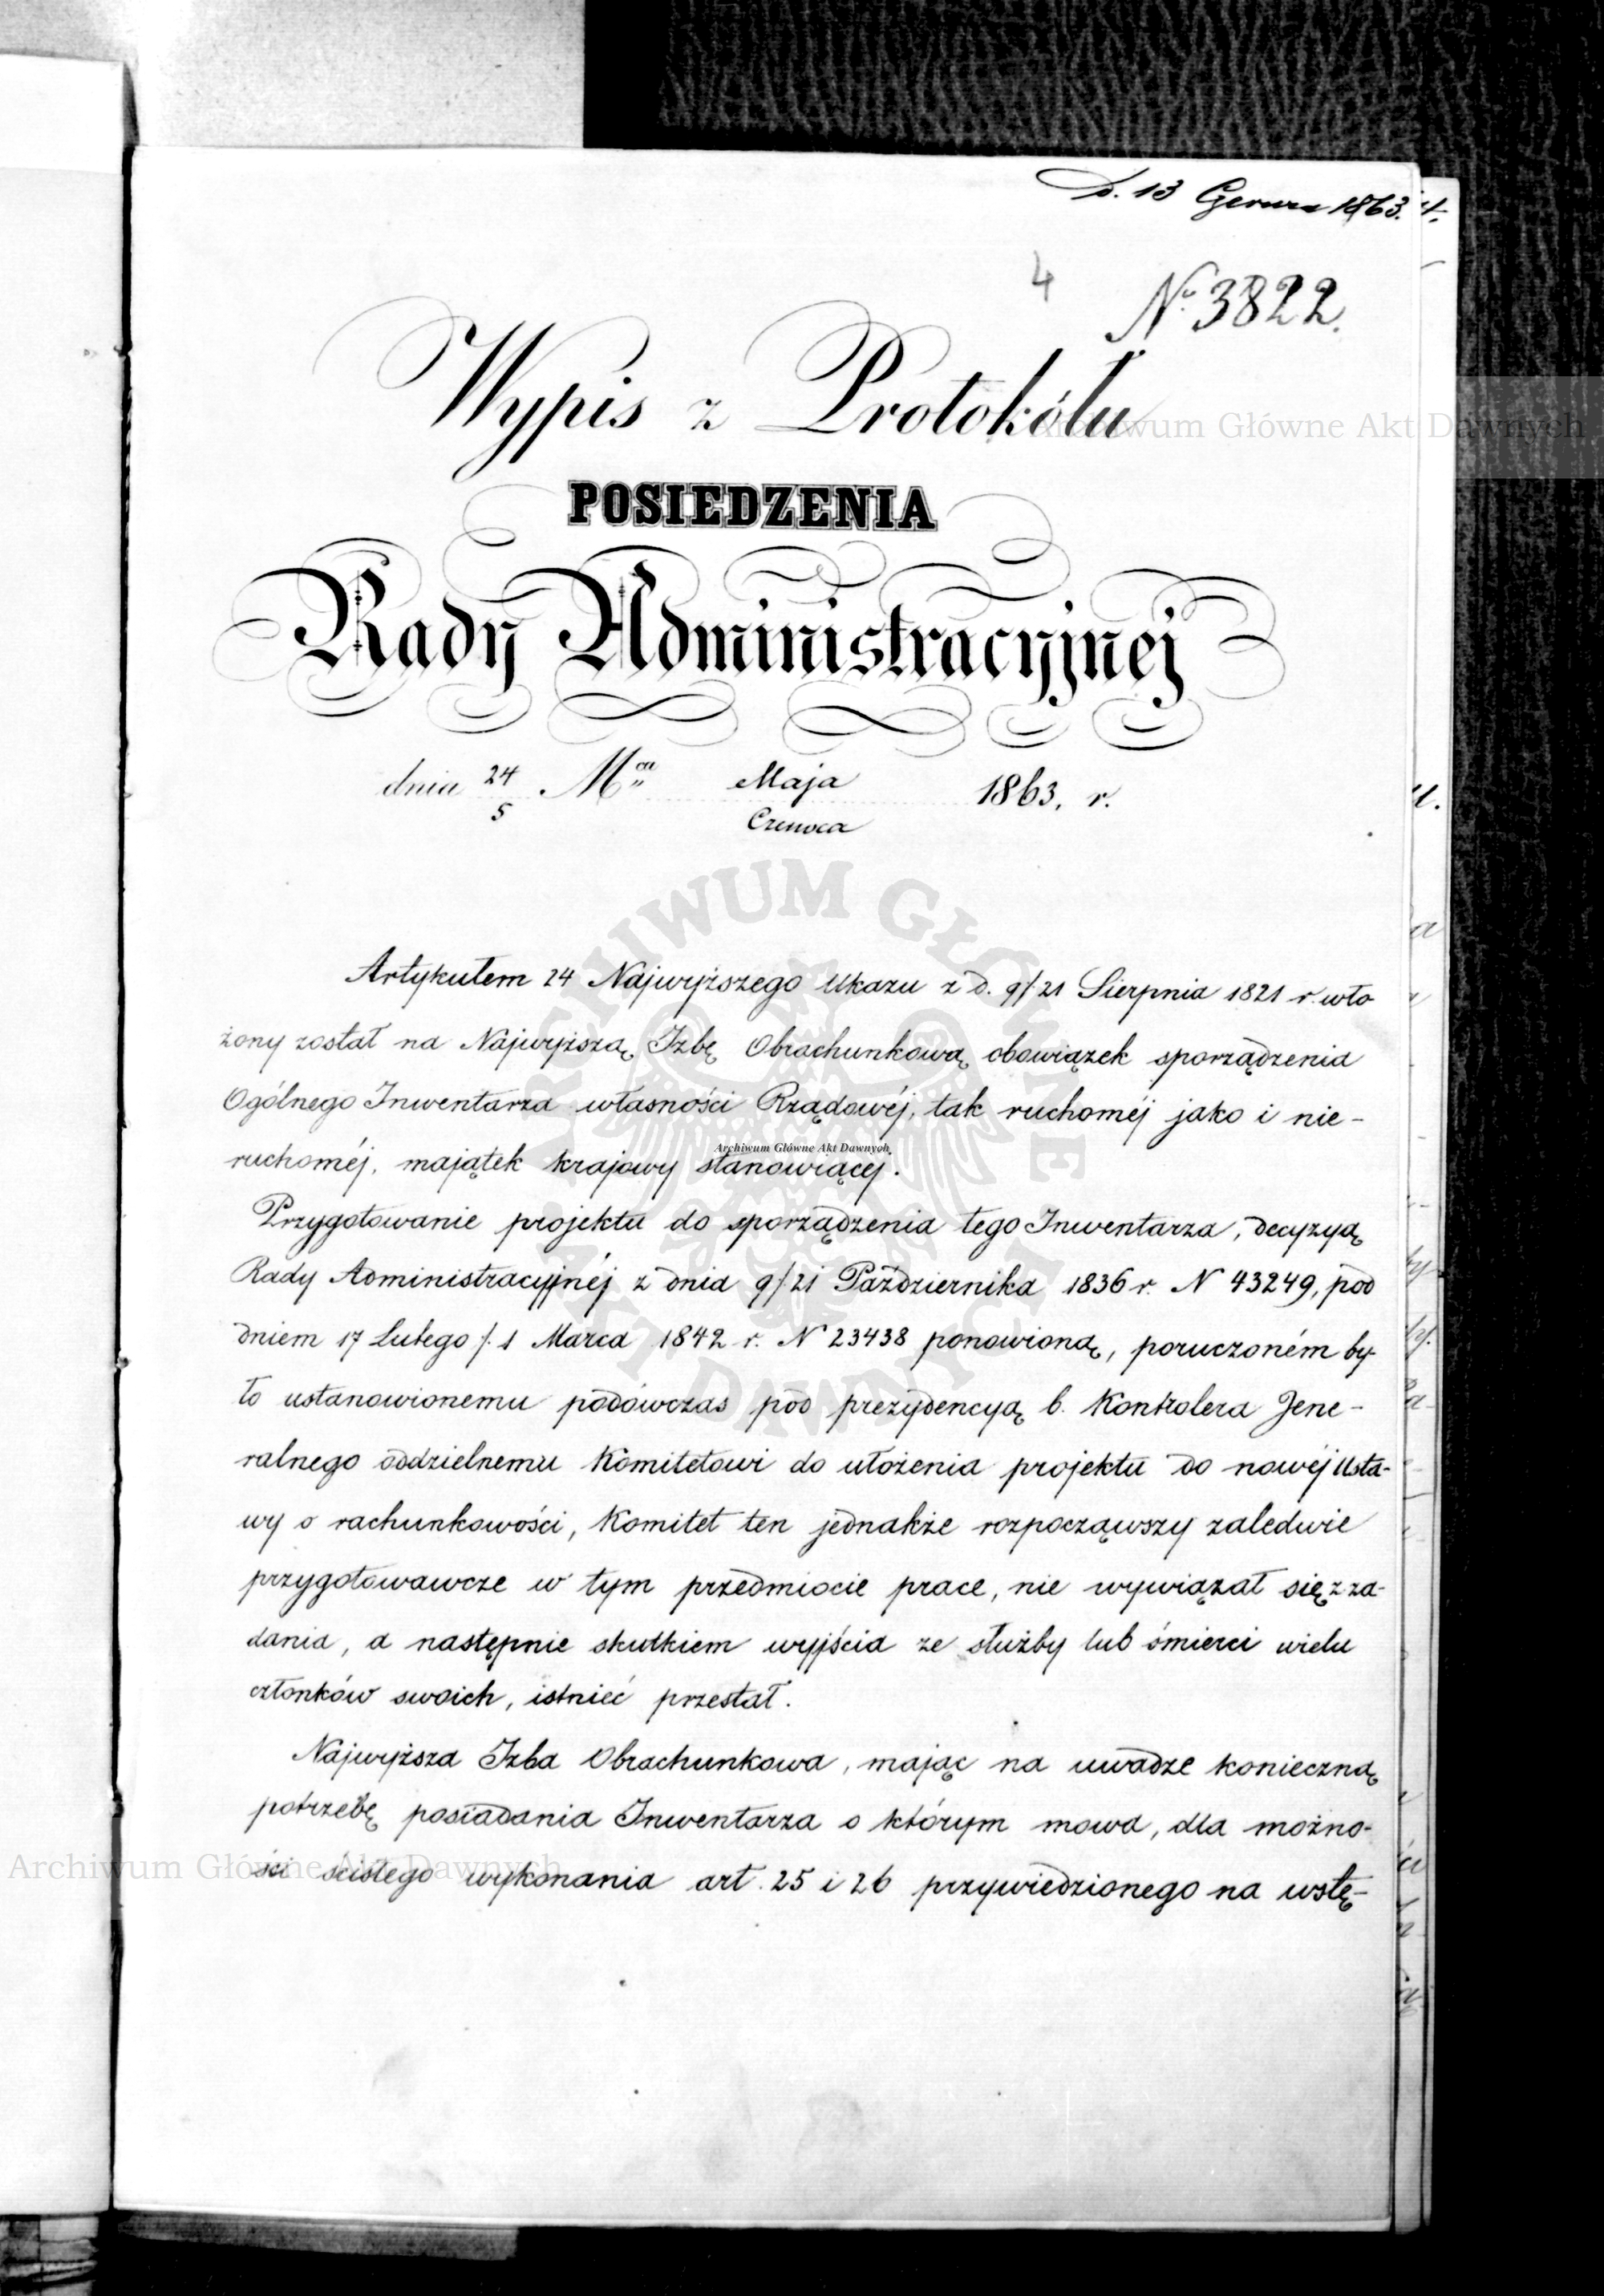 d. 13 Czerwca 1863.
4
№ 3822.
Wypis z Protokółu
POSIEDZENIA
Rady Administracyjnej
dnia 24/5 Mca Maja/Czerwca 1863. r.
Artykułem 24 Najwyższego Ukazu z d. 9/21 Sierpnia 1821 r. wło
żony został na Najwyższą Izbę Obrachunkową obowiązek sporządzenia
Ogólnego Inwentarza własności Rządowéj, tak ruchoméj jako i nie-
ruchoméj, majątek krajowy stanowiącéj.
Przygotowanie projektu do sporządzenia tego Inwentarza, decyzyą
Rady Administracyjnéj z dnia 9/21 Października 1836 r. N 43249, pod
dniem 17 Lutego /. 1 Marca 1842 r. N 23438 ponowioną, poruczoném by-
ło ustanowionemu podówczas pod prezydencyą b. Kontrolera Jene-
ralnego oddzielnemu Komitetowi do ułożenia projektu do nowéj Usta-
wy o rachunkowości, Komitet ten jednakże rozpocząwszy zaledwie
przygotowawcze w tym przedmiocie prace, nie wywiązał się z za-
dania, a następnie skutkiem wyjścia ze służby lub śmierci wielu
członków swoich, istnieć przestał.
Najwyższa Izba Obrachunkowa, mając na uwadze konieczną
potrzebę posiadania Inwentarza o którym mowa, dla możno-
ści ścisłego wykonania art. 25 i 26 przywiedzionego na wstę-
Archiwum Główne Akt Dawnych
Archiwum Główne Akt Dawnych
Archiwum Główne Akt Dawnych
ARCHIWUM GŁÓWNE AKT DAWNYCH